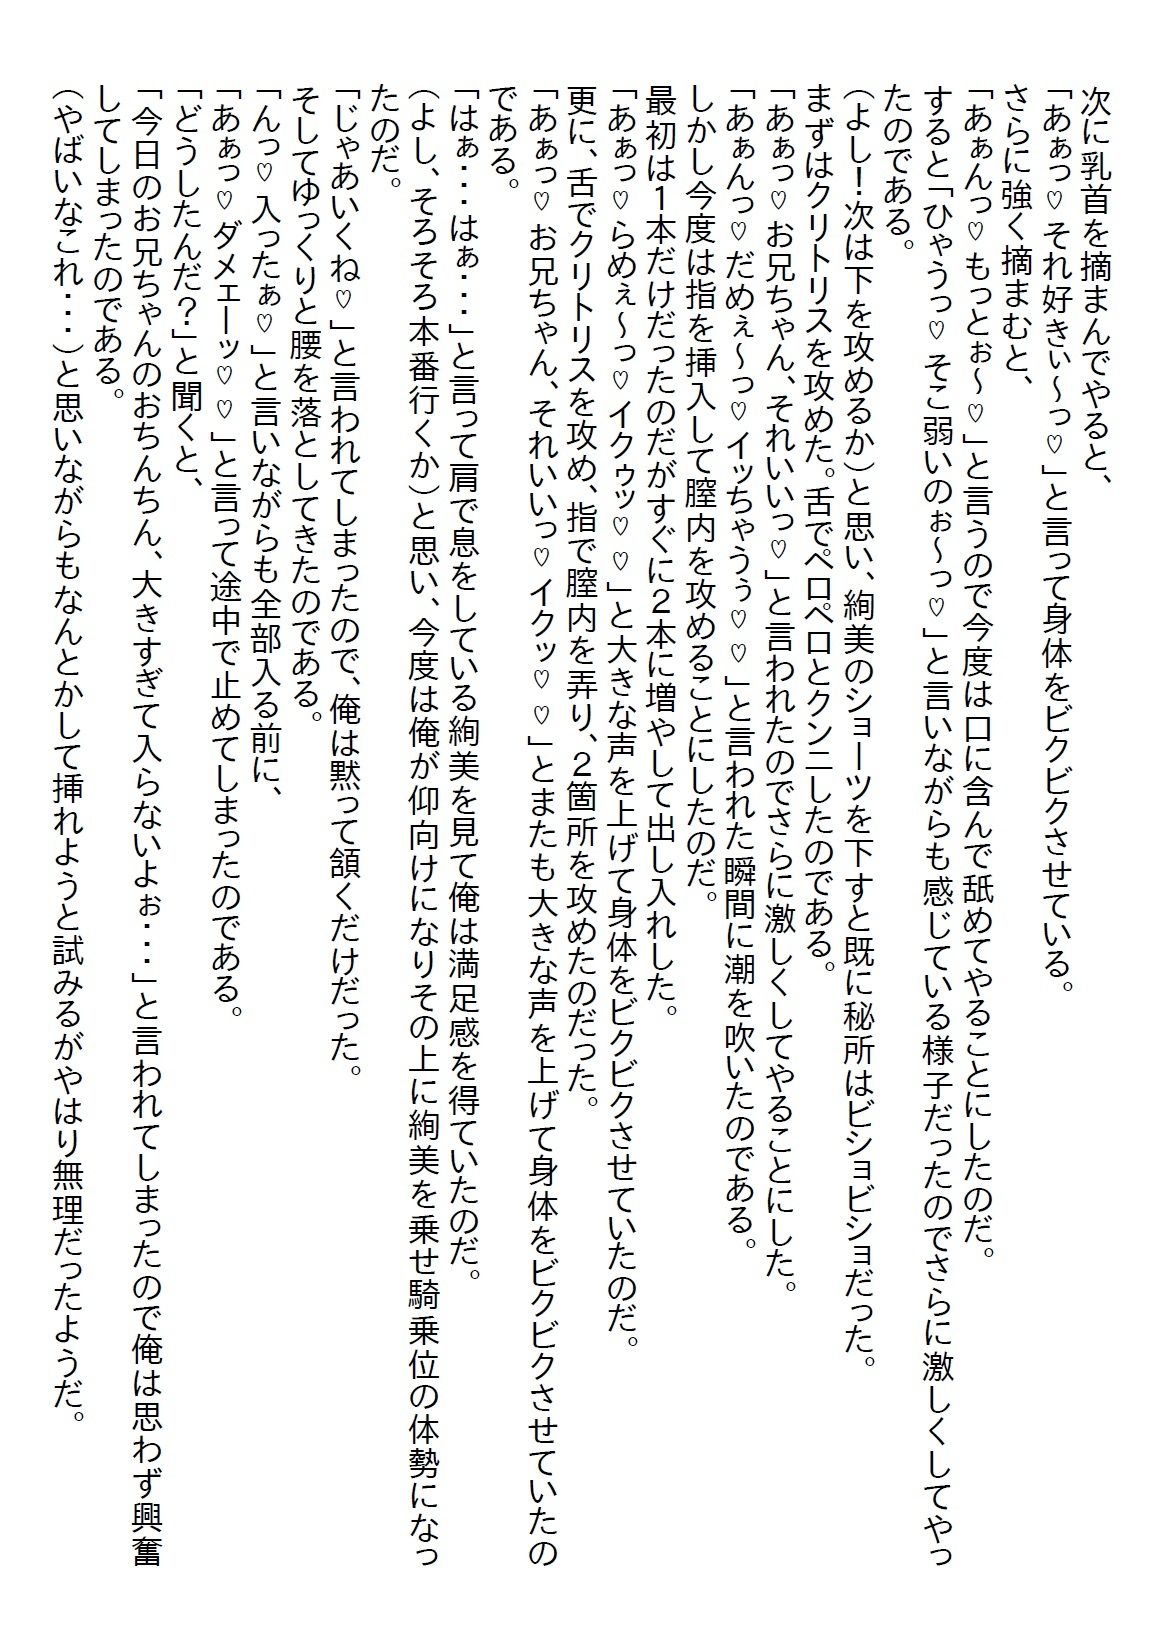 次に乳首を摘まんでやると、
「あぁっ♡それ好きぃ～っ♡」と言って身体をビクビクさせている。
さらに強く摘まむと、
「あぁんっ♡もっとぉ～♡」と言うので今度は口に含んで舐めてやることにしたのだ。
すると「ひゃうっ♡そこ弱いのぉ～っ♡」と言いながらも感じている様子だったのでさらに激しくしてやっ
たのである。
（よし！次は下を攻めるか）と思い、絢美のショーツを下すと既に秘所はビショビショだった。
まずはクリトリスを攻めた。舌でペロペロとクンニしたのである。
「あぁっ♡お兄ちゃん、それいいっ♡」と言われたのでさらに激しくしてやることにした。
「あぁんっ♡だめぇ～っ♡イッちゃうぅ♡♡」と言われた瞬間に潮を吹いたのである。
しかし今度は指を挿入して膣内を攻めることにしたのだ。
最初は１本だけだったのだがすぐに２本に増やして出し入れした。
「あぁっ♡らめぇ～っ♡イクゥッ♡♡」と大きな声を上げて身体をビクビクさせていたのだ。
更に、舌でクリトリスを攻め、指で膣内を弄り、２箇所を攻めたのだった。
「あぁっ♡お兄ちゃん、それいいっ♡イクッ♡♡」とまたも大きな声を上げて身体をビクビクさせていたの
である。
「はぁ・・・はぁ・・・」と言って肩で息をしている絢美を見て俺は満足感を得ていたのだ。
（よし、そろそろ本番行くか）と思い、今度は俺が仰向けになりその上に絢美を乗せ騎乗位の体勢になっ
たのだ。
「じゃあいくね♡」と言われてしまったので、俺は黙って頷くだけだった。
そしてゆっくりと腰を落としてきたのである。
「んっ♡入ったぁ♡」と言いながらも全部入る前に、
「あぁっ♡ダメェーッ♡♡」と言って途中で止めてしまったのである。
「どうしたんだ？」と聞くと、
「今日のお兄ちゃんのおちんちん、大きすぎて入らないよぉ・・・」と言われてしまったので俺は思わず興奮
してしまったのである。
（やばいなこれ・・・）と思いながらもなんとかして挿れようと試みるがやはり無理だったようだ。